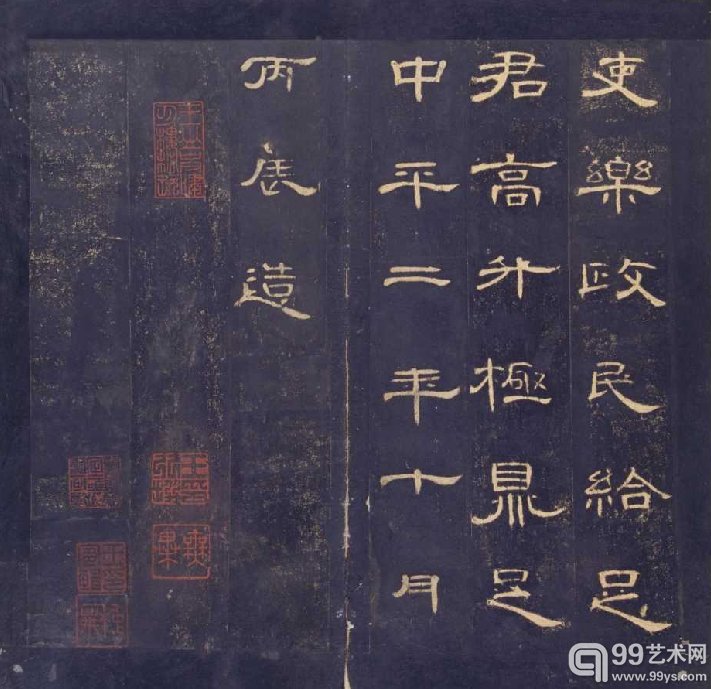 吏樂政民給足
君高升極鼎足
中平二年十月
丙辰造
99艺术网
www.99ys.com